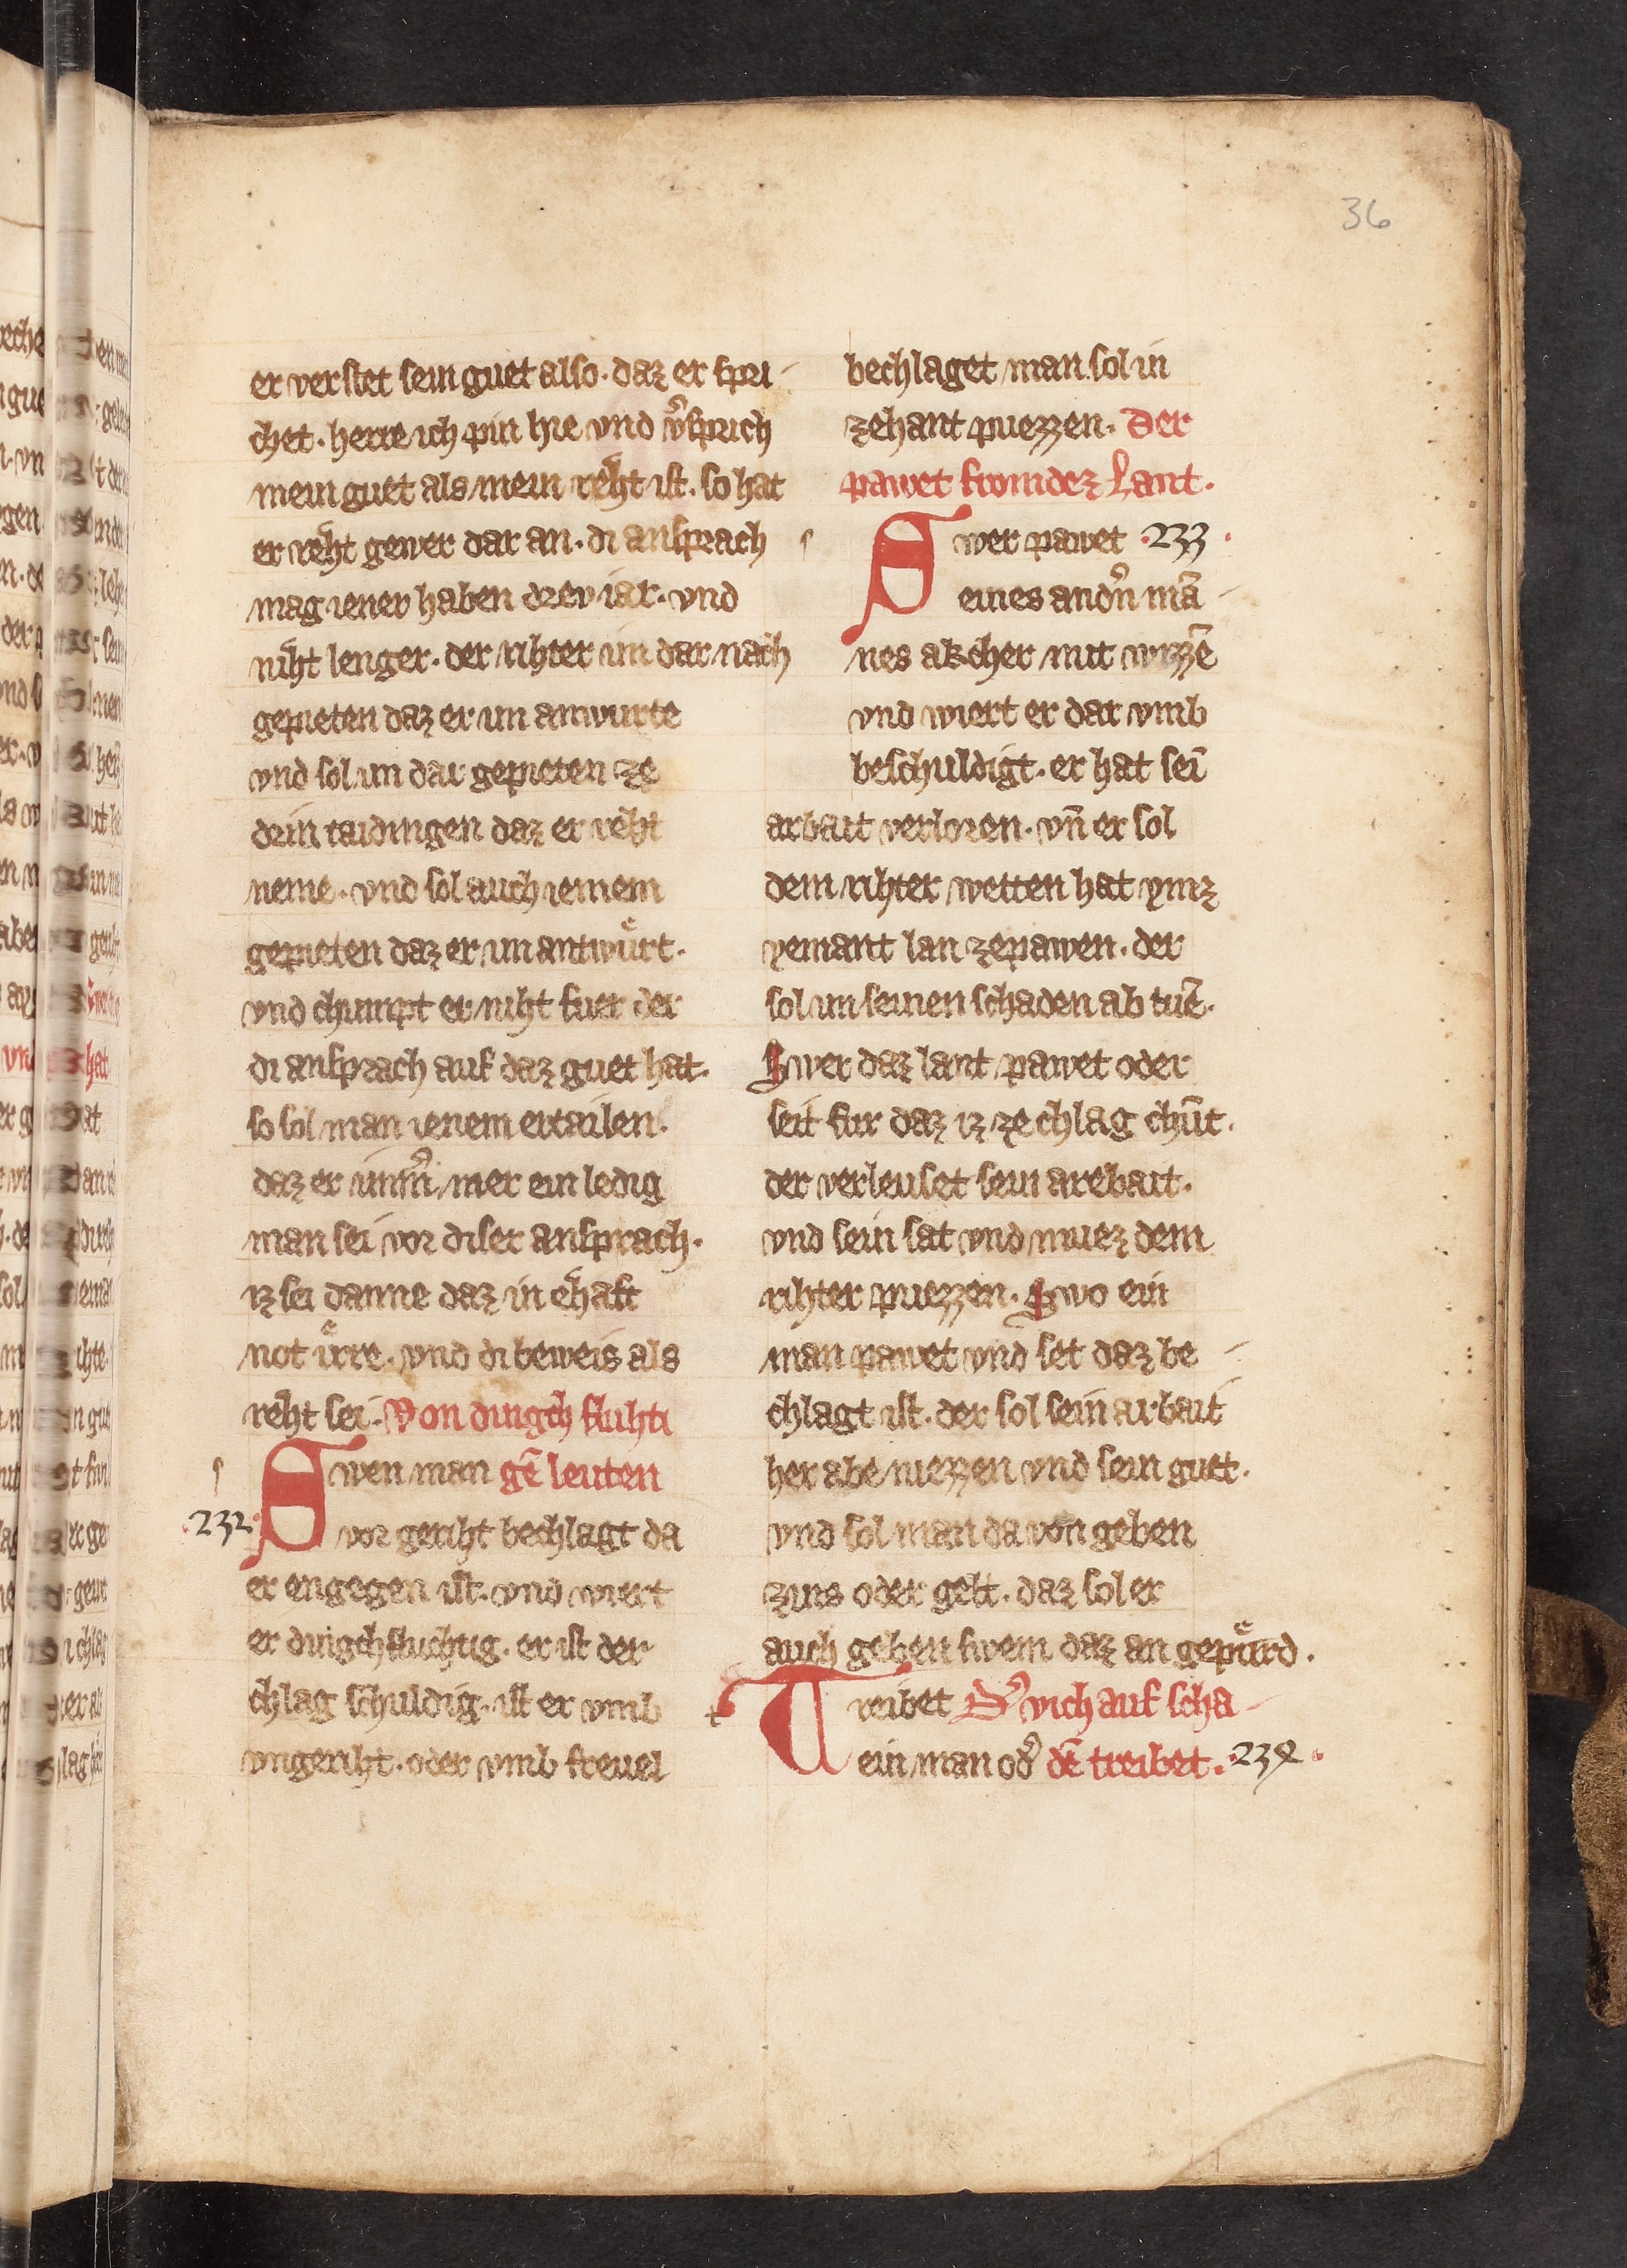 36
er verstet sein guet also. daz er spri-
chet. herre ich pin hie vnd v͛sprich
mein guet als mein reht ist. so hat
er reht gewer dar an. di ansprach
mag iener haben drev iar. vnd
niht lenger. der rihter im dar nach
gepieten daz er im antwurte
vnd sol im dar gepieten ze
drin taidingen daz er reht
neme. vnd sol auch ienem
gepieten daz er im antwuͤrt.
vnd chumpt er niht fuer der
di ansprach auf daz guet hat.
so sol man ienem ertailen.
daz er imm͛ mer ein ledig
man sei vor diser ansprach.
iz sei danne daz in ehaft
not irre. vnd di beweis als
reht sei. Von dingch fluhti
Swen man gē leuten
232. vor geriht bechlagt da
er engegen ist. vnd wiert
er dingchfluchtig. er ist der
chlag schuldig. ist er vmb
vngeriht. oder vmb freuel
bechlaget man sol in
zehant puezzen. Der
pawet fromdez Lant.
Swer pawet .233.
eines and͛n mā-
nes akcher mit wizzē
vnd wiert er dar vmb
beschuldigt. er hat sei̅
arbait verloren. vn̅ er sol
dem rihter wetten hat ymz
yemant lan zepawen. der
sol im seinen schaden ab tuē.
Swer daz lant pawet oder
seit fur daz iz ze chlag chūt.
der verleuset sein arebait.
vnd sein sat vnd muez dem
rihter puezzen. Swo ein
man pawet vnd set daz be-
chlagt ist. der sol sein arbait
her abe niezzen vnd sein guet.
vnd sol man da von geben
zins oder gelt. daz sol er
auch geben swem daz an gepuͤrd.
Treibet D͛ vich auf scha-
ein man od͛ dē treibet. .234.